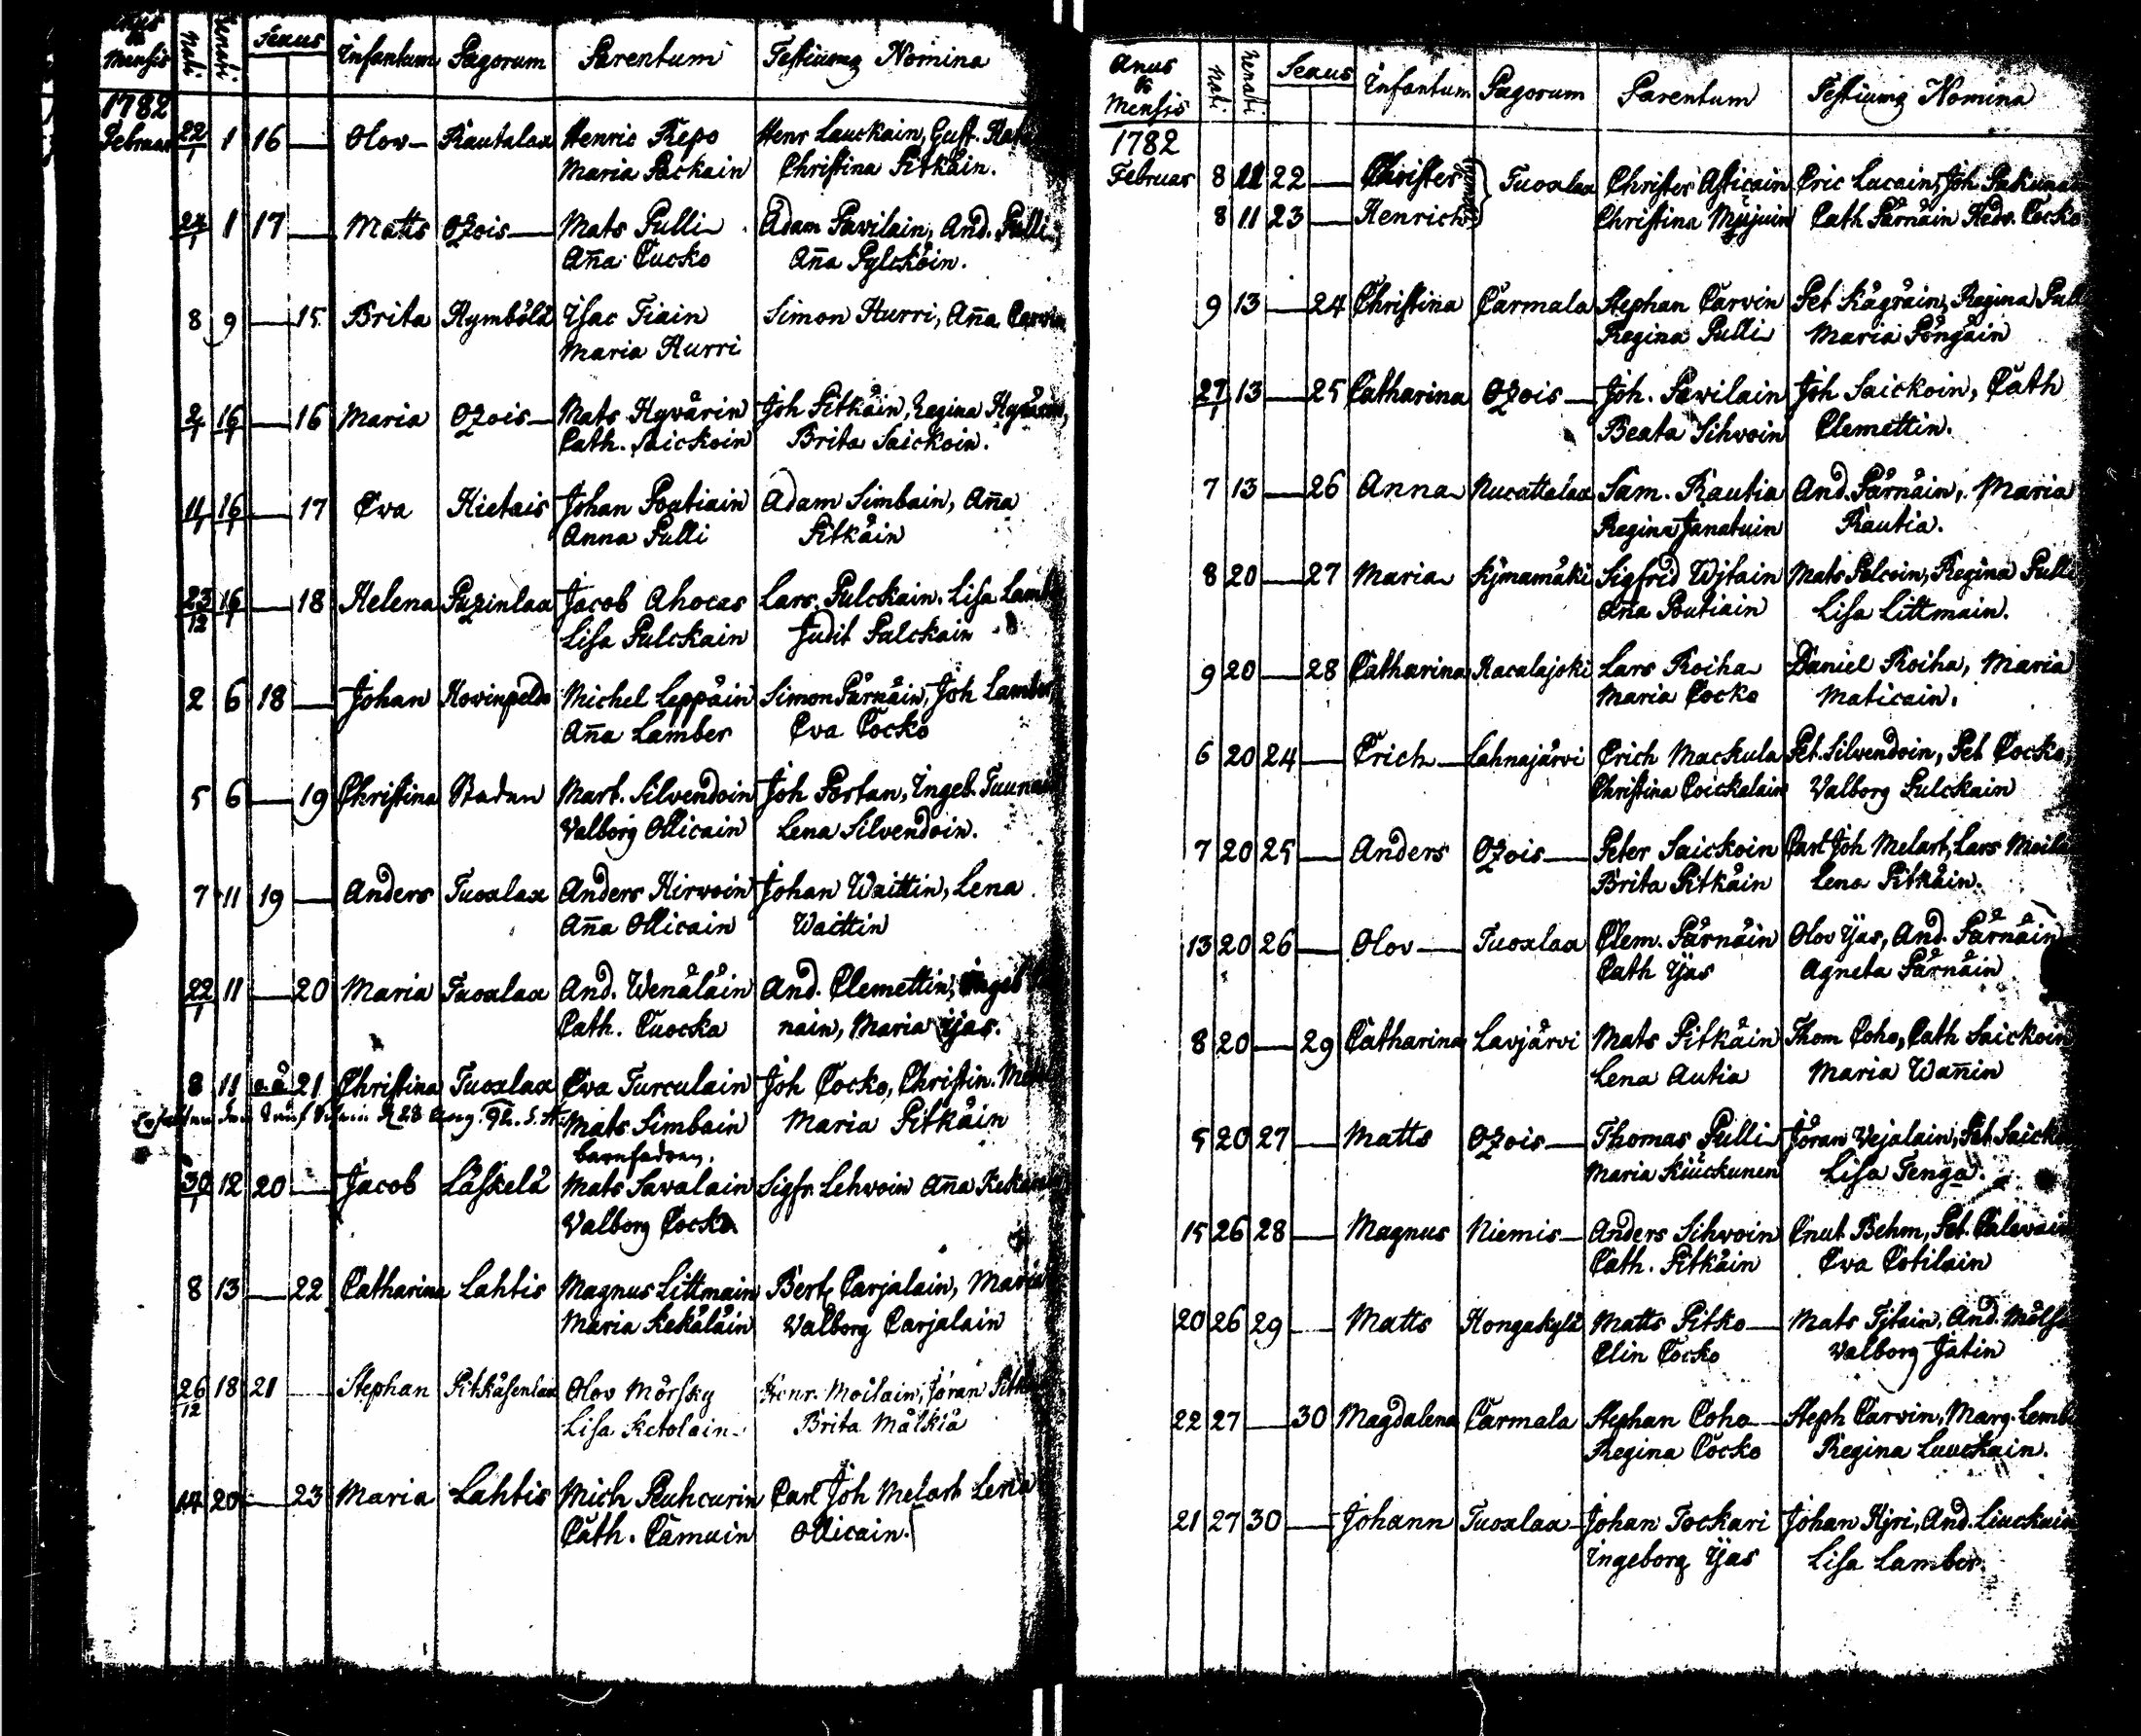 Mensis Nati Renati Sexus Infantum Pagorum Parentum Testiumq Nomina
1782
Februar 22/1 1 16 — Olov Rautalax Henric Repo Henr Lauckain, Gust.
Maria Packain Christina Pitkäin.
24/1 1 17 — Matts Ozois Mats Pulli Adam Pavilain, And. Pulli
Anna Cucko Anna Pylcköin.
8 9 — 15 Brita Kymbölä Isac Tiain Simon Hurri, Anna Carvin
Maria Hurri
2/1 16/1 — 16 Maria Ozois Mats Hyvärin Joh Pitkäin, Regina Hyvärin,
Cath. Saickoin Brita Saickoin.
11/1 16/1 — 17 Eva Hietais Johan Poutiain Adam Simbain, Anna
Anna Pulli Pitkäin
23/12 16/1 — 18 Helena Puzinlax Jacob Ahocas Lars Pulckain, Lisa Lamb
Lisa Pulckain Judit Pulckain
2 6 18 — Johan Hovinpelds Michel Leppäin Simon Pärnäin, Joh Lamber
Anna Lamber Eva Cocko
5 6 — 19 Christina Staden Mart. Silvendoin Joh Portan, Ingeb. Tuuna
Valborg Ollicain Lena Silvendoin.
7 11 19 — Anders Tuoxlax Anders Hirvoin Johan Waittin, Lena
Anna Ollicain Waittin
22/1 11 — 20 Maria Tuoxlax And. Wenäläin And. Clemettin, Ingeb
Cath. Cuocka nain, Maria Ijas.
8 11 o.ä 21 Christina Tuoxlax Eva Turculain Joh Cocko, Christin.
28 Aug. Mats Simbain Maria Pitkäin
barnfadren.
30/1 12 20 — Jacob Läskelä Mats Savalain Sigfr. Lehvoin Anna
Valborg Cocko
8 13 — 22 Catharina Lahtis Magnus Littmain Bert. Carjalain, Maria
Maria Kekäläin Valborg Carjalain
26/12 18 21 — Stephan Pitkäsenlax Olov Mörsky Henr. Moilain, Jöran
Lisa Ketolain Brita Mälkiä
14 20 — 23 Maria Lahtis Mich Peuhcurin Carl Joh Melart Lena
Cath. Cämuin Ollicain.
Anus & Mensis Nati Renati Sexus Infantum Pagorum Parentum Testiumq Nomina
1782
Februar 8 11 22 — Christer Tuoxlax Christer Asticain Eric Lucain, Joh Pakunain
8 11 23 — Henrich Christina Mujuin Cath Pärnäin Hedv. Cocko
9 13 — 24 Christina Carmala Stephan Carvin Pet Kägräin, Regina Pulli
Regina Pulli Maria Pöngäin
27/1 13 — 25 Catharina Ozois Joh. Pavilain Joh Saickoin, Cath
Beata Sihvoin Clemettin.
7 13 — 26 Anna Nucattalax Sam. Rautia And. Pärnäin, Maria
Regina Janatuin Rautia.
8 20 — 27 Maria Kijmamäki Sigfrid Wjtain Mats Polcoin, Regina Pulli
Anna Poutiain Lisa Littmain.
9 20 — 28 Catharina Racalajoki Lars Roiha Daniel Roiha, Maria
Maria Cocko Maticain.
6 20 24 — Erich Lahnajärvi Erich Mackula Pet. Silvendoin, Pet Cocko,
Christina Coickalain Valborg Pulckain
7 20 25 — Anders Ozois Peter Saickoin Carl Joh Melart, Lars Moila
Brita Pitkäin Lena Pitkäin.
13 20 26 — Olov Tuoxlax Clem. Pärnäin Olov Ijas, And. Pärnäin
Cath Ijas Agneta Pärnäin
8 20 — 29 Catharina Lavjärvi Mats Pitkäin Thom Coho, Cath Saickoin
Lena Autia Maria Wannin
5 20 27 — Matts Ozois Thomas Pulli Jöran Vejalain, Pet. Saicko
Maria Kiuckunen Lisa Tenga.
15 26 28 — Magnus Niemis Anders Sihvoin Cnut Behm, Pet.
Cath. Pitkäin Eva Cotilain
20 26 29 — Matts Hongakylä Matts Pitko Mats Tjtain, And. Mölsä
Elin Cocko Valborg Jatin
22 27 — 30 Magdalena Carmala Stephan Coho Steph Carvin, Marg. Lemb
Regina Cocko Regina Luuckain.
21 27 30 — Johann Tuoxlax Johan Tockari Johan Hjri, And. Liuckain
Ingeborg Ijas Lisa Lamber.